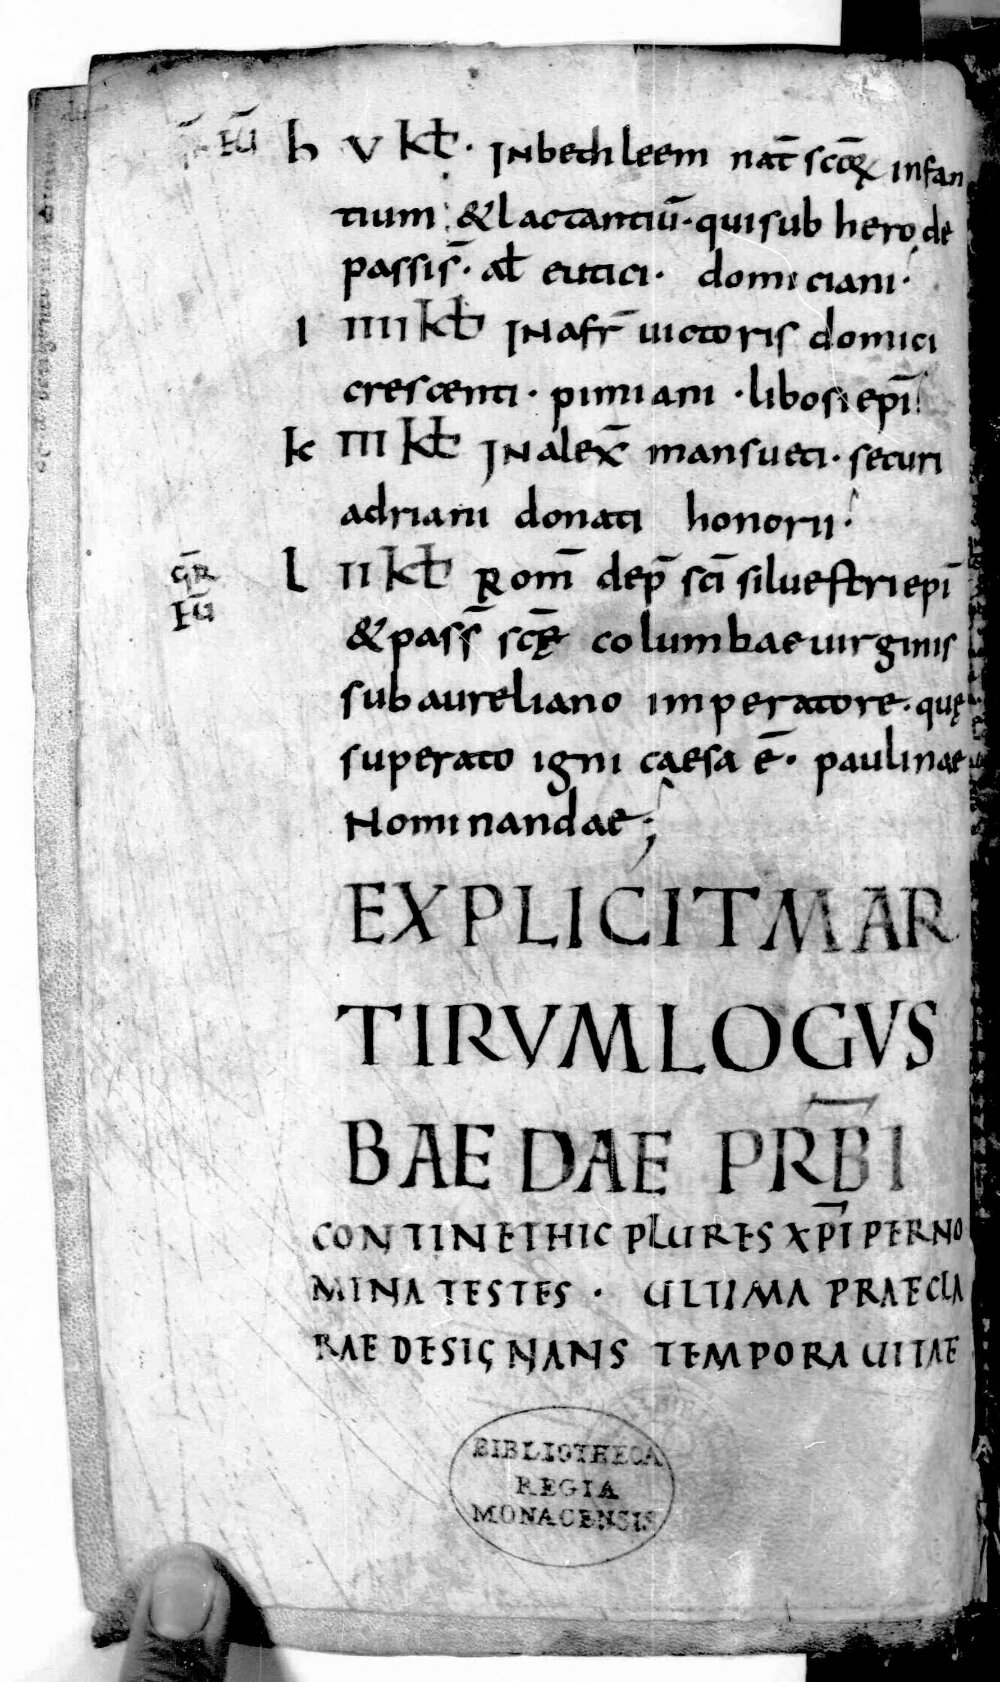 FŪ h V kƚ · INbethleem nat̄ sc̄c̄oꝝ infan
tium · &lactantiū · quisub herode
passis̄ · aƚ eutici · domiciani ·
I IIII kƚ INafr̄ uictoris domici
crescenti · pimiani · libosi ep̄i
k III kƚ INalex̄ mansueti · securi
adriani donati honorii ·
l II kƚ Rom̄ dep̄ sc̄i siluestri ep̄i
FŪ
&pass̄ sc̄ę columbae uirginis
sub aureliano imperatore · quę
superato igni caesa ē · paulinae
Nominandae ;
EXPLICIT MAR
TIRVMLOGVS
BAEDAE PRB̄I
CONTINET HIC PLURES XP̄I PER NO
MINA TESTES · ULTIMA PRAECLA
RAE DESIGNANS TEMPORA UITAE
BIBLIOTHECA
REGIA
MONACENSIS